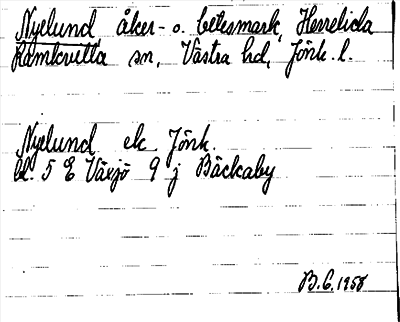 Nyelund, åker- o. betesmark, Herrelida
Ramkvilla sn, Västra hd, Jönk. l.
Nyelund ek Jönk.
bl. 5 E Växjö 9 j Bäckaby
B.G. 1958